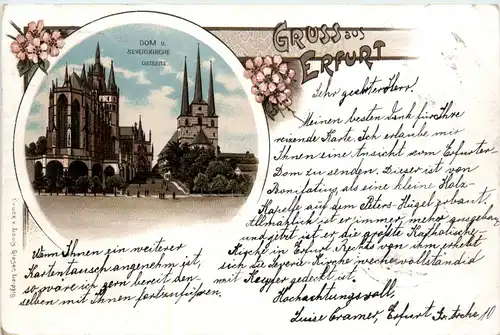 DOM u.
SEVERIKIRCHE
OSTSEITE
Gruss aus
Erfurt
Sehr geehrter Herr!
Meinen besten Dank für Ihre
reizende Karte. Ich erlaube mir
Ihnen eine Ansicht vom Erfurter
Dom zu senden. Dieser ist von
Bonifatius, als eine kleine Holz-
Kapelle auf dem Peters-Hügel erbaut.
Allmählich ist er immer, mehr ausgebaut
und jetzt ist er die größte Katholische-
Kirche in Erfurt. Rechts von ihm erhebt
sich die Severie-Kirche welche vollständig
mit Kupfer gedeckt ist.
Hochachtungsvoll,
Luise Cramer, Erfurt 10
Wenn Ihnen ein weiterer
Kartentausch angenehm ist,
so wäre ich gern bereit den-
selben mit Ihnen fortzuführen.